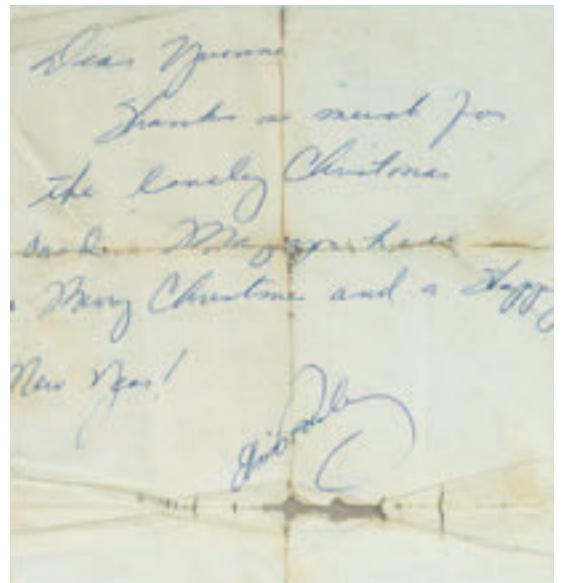 Dear Yvonne
Thanks so much for
the lovely Christmas
card. May you have
a Merry Christmas and a Happy
New Year!